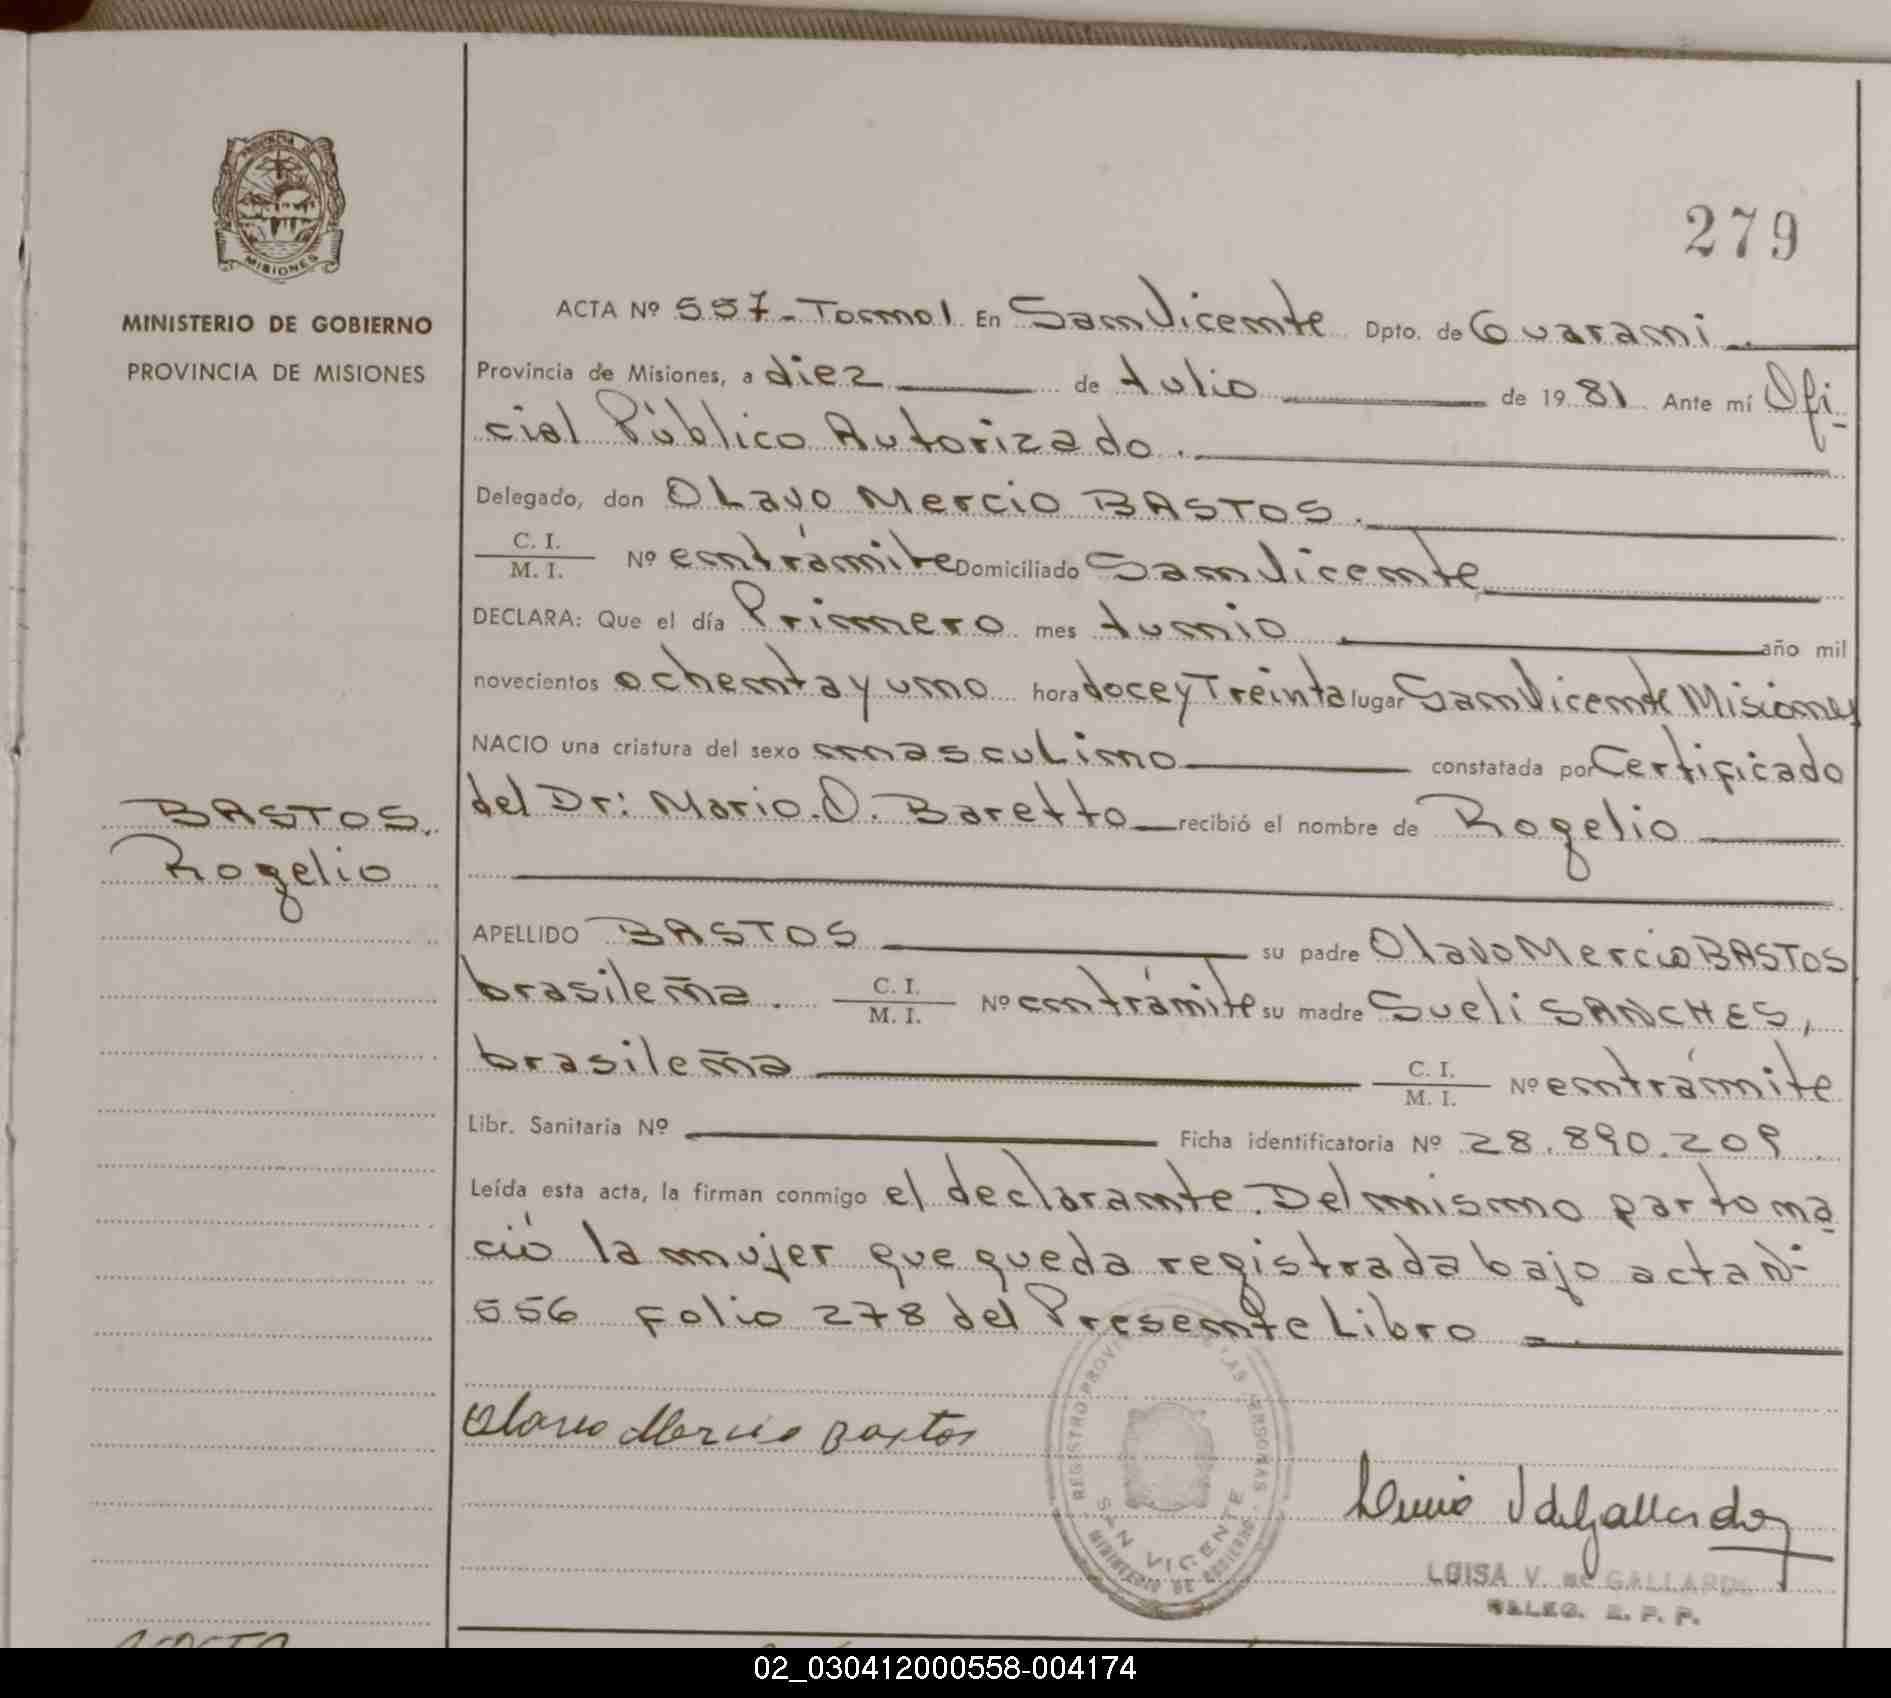 PROVINCIA DE
MISIONES
MINISTERIO DE GOBIERNO
PROVINCIA DE MISIONES
279
ACTA Nº 557 - Tomo I En San Vicente Dpto. de Guaraní
Provincia de Misiones, a diez de Julio de 1981 Ante mí Ofi-
cial Público Autorizado.
Delegado, don Olavo Mercio BASTOS.
C. I.
M. I. Nº en trámite Domiciliado San Vicente
DECLARA: Que el día Primero mes Junio año mil
novecientos ochenta y uno hora doce y Treinta lugar San Vicente Misiones
NACIO una criatura del sexo masculino constatada por Certificado
del Dr: Mario. O. Baretto recibió el nombre de Rogelio
BASTOS.
Rogelio
APELLIDO BASTOS su padre Olavo Mercio BASTOS
brasileña. C. I.
M. I. Nº en trámite su madre Sueli SANCHES,
brasileña C. I.
M. I. Nº en trámite
Libr. Sanitaria Nº Ficha identificatoria Nº 28.890.209
Leída esta acta, la firman conmigo el declarante. Del mismo parto na
ció la mujer que queda registrada bajo acta Nº
556 Folio 278 del Presente Libro
Olavo Mercio Bastos
REGISTRO PROV LAS PERSONAS
SAN VICENTE
MINISTERIO DE GOBIERNO
V de Gallardo
LUISA V. de GALLARDO
DELEG. R. P. P.
02_030412000558-004174